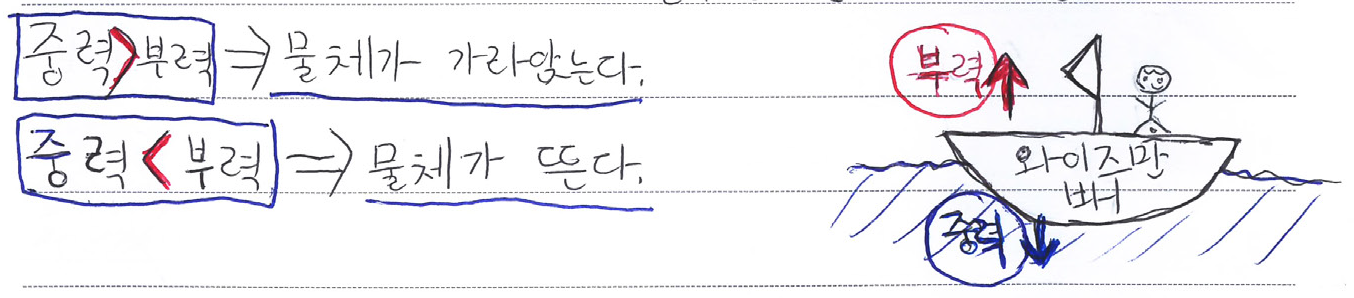 중력>부력 ⇒ 물체가 가라앉는다.
중력<부력 ⇒ 물체가 뜬다.
부력
와이즈만
배
중력